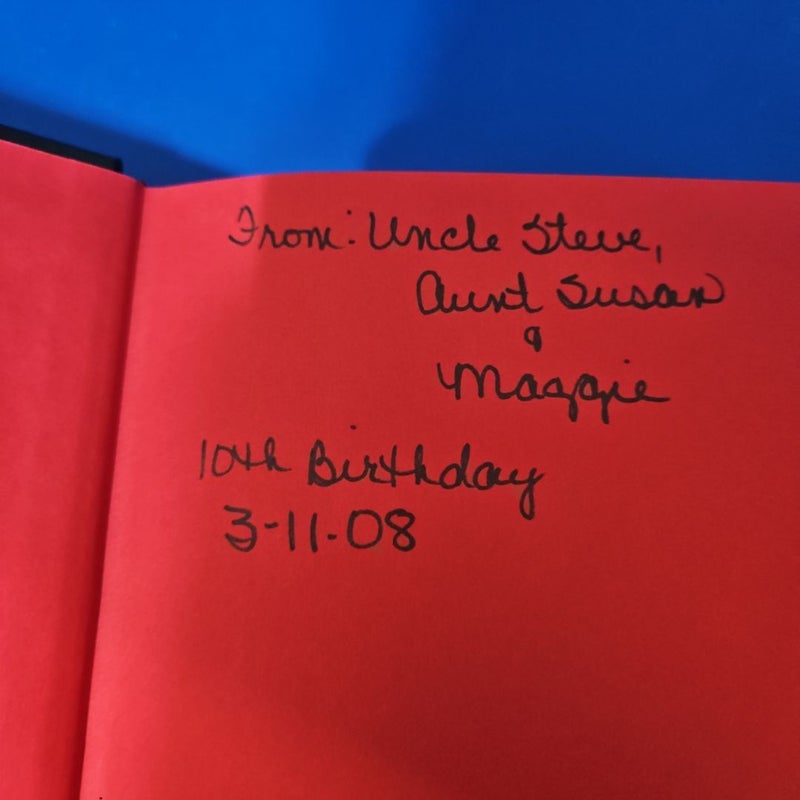 From: Uncle Steve,
Aunt Susan
&
Maggie
10th Birthday
3-11-08